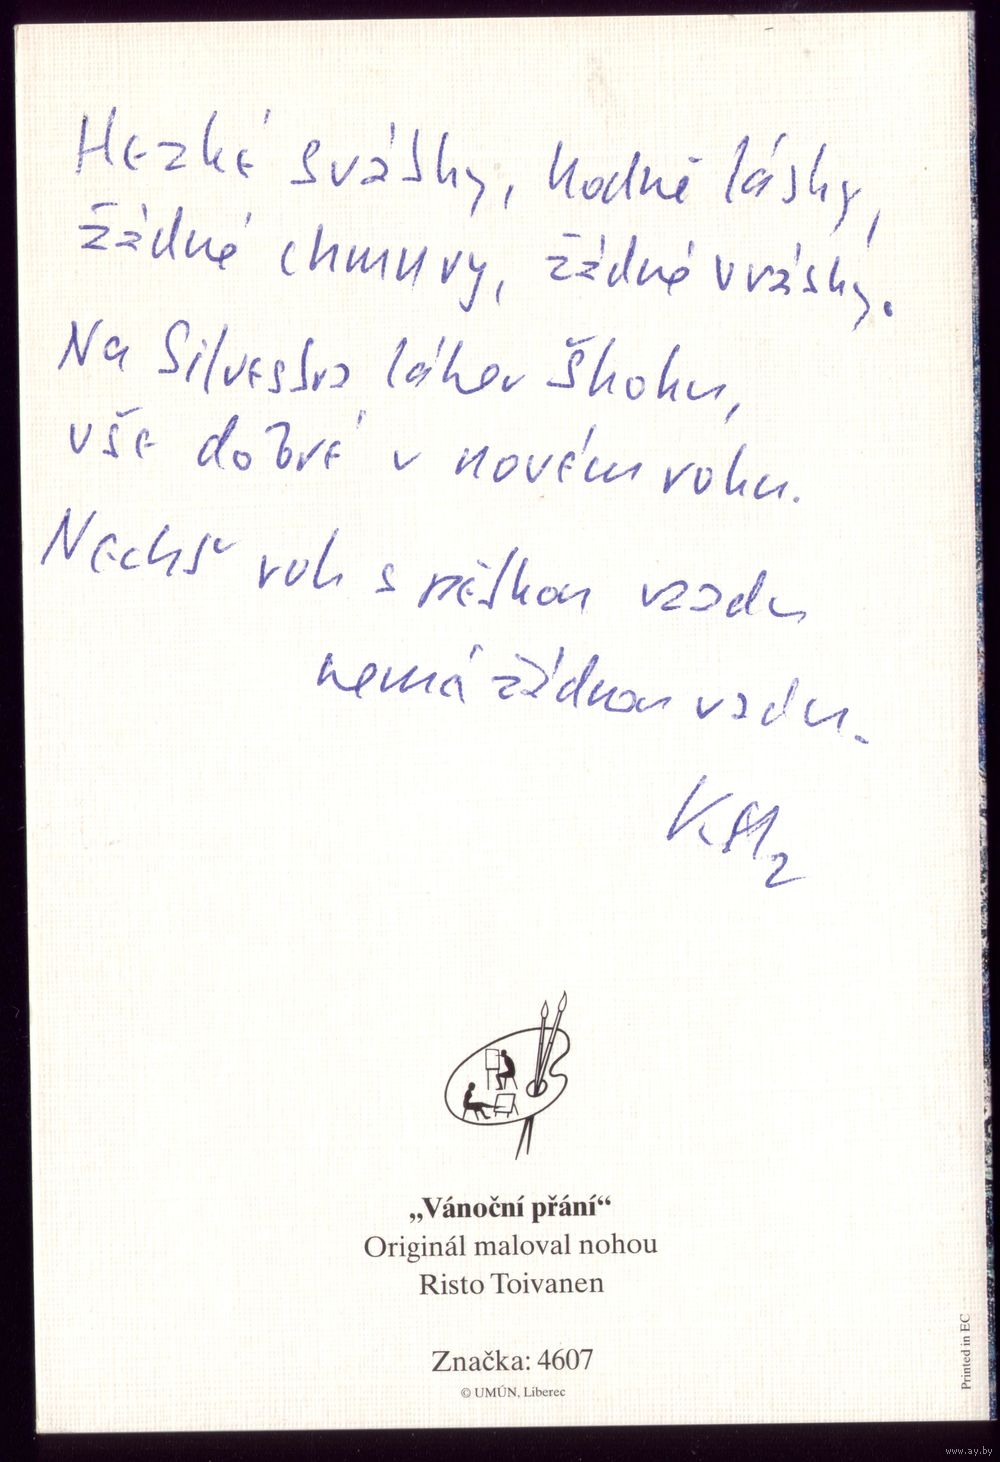 Hezké svátky, hodně lásky,
žádné chmury, žádné vrásky.
Na Silvestra láhev škoku,
vše dobré v novém roku.
Nechť rok s pětkou vzadu
nemá žádnou vadu.
„Vánoční přání“
Originál maloval nohou
Risto Toivanen
Značka: 4607
© UMÚN, Liberec
Printed in EC
www.ay.by